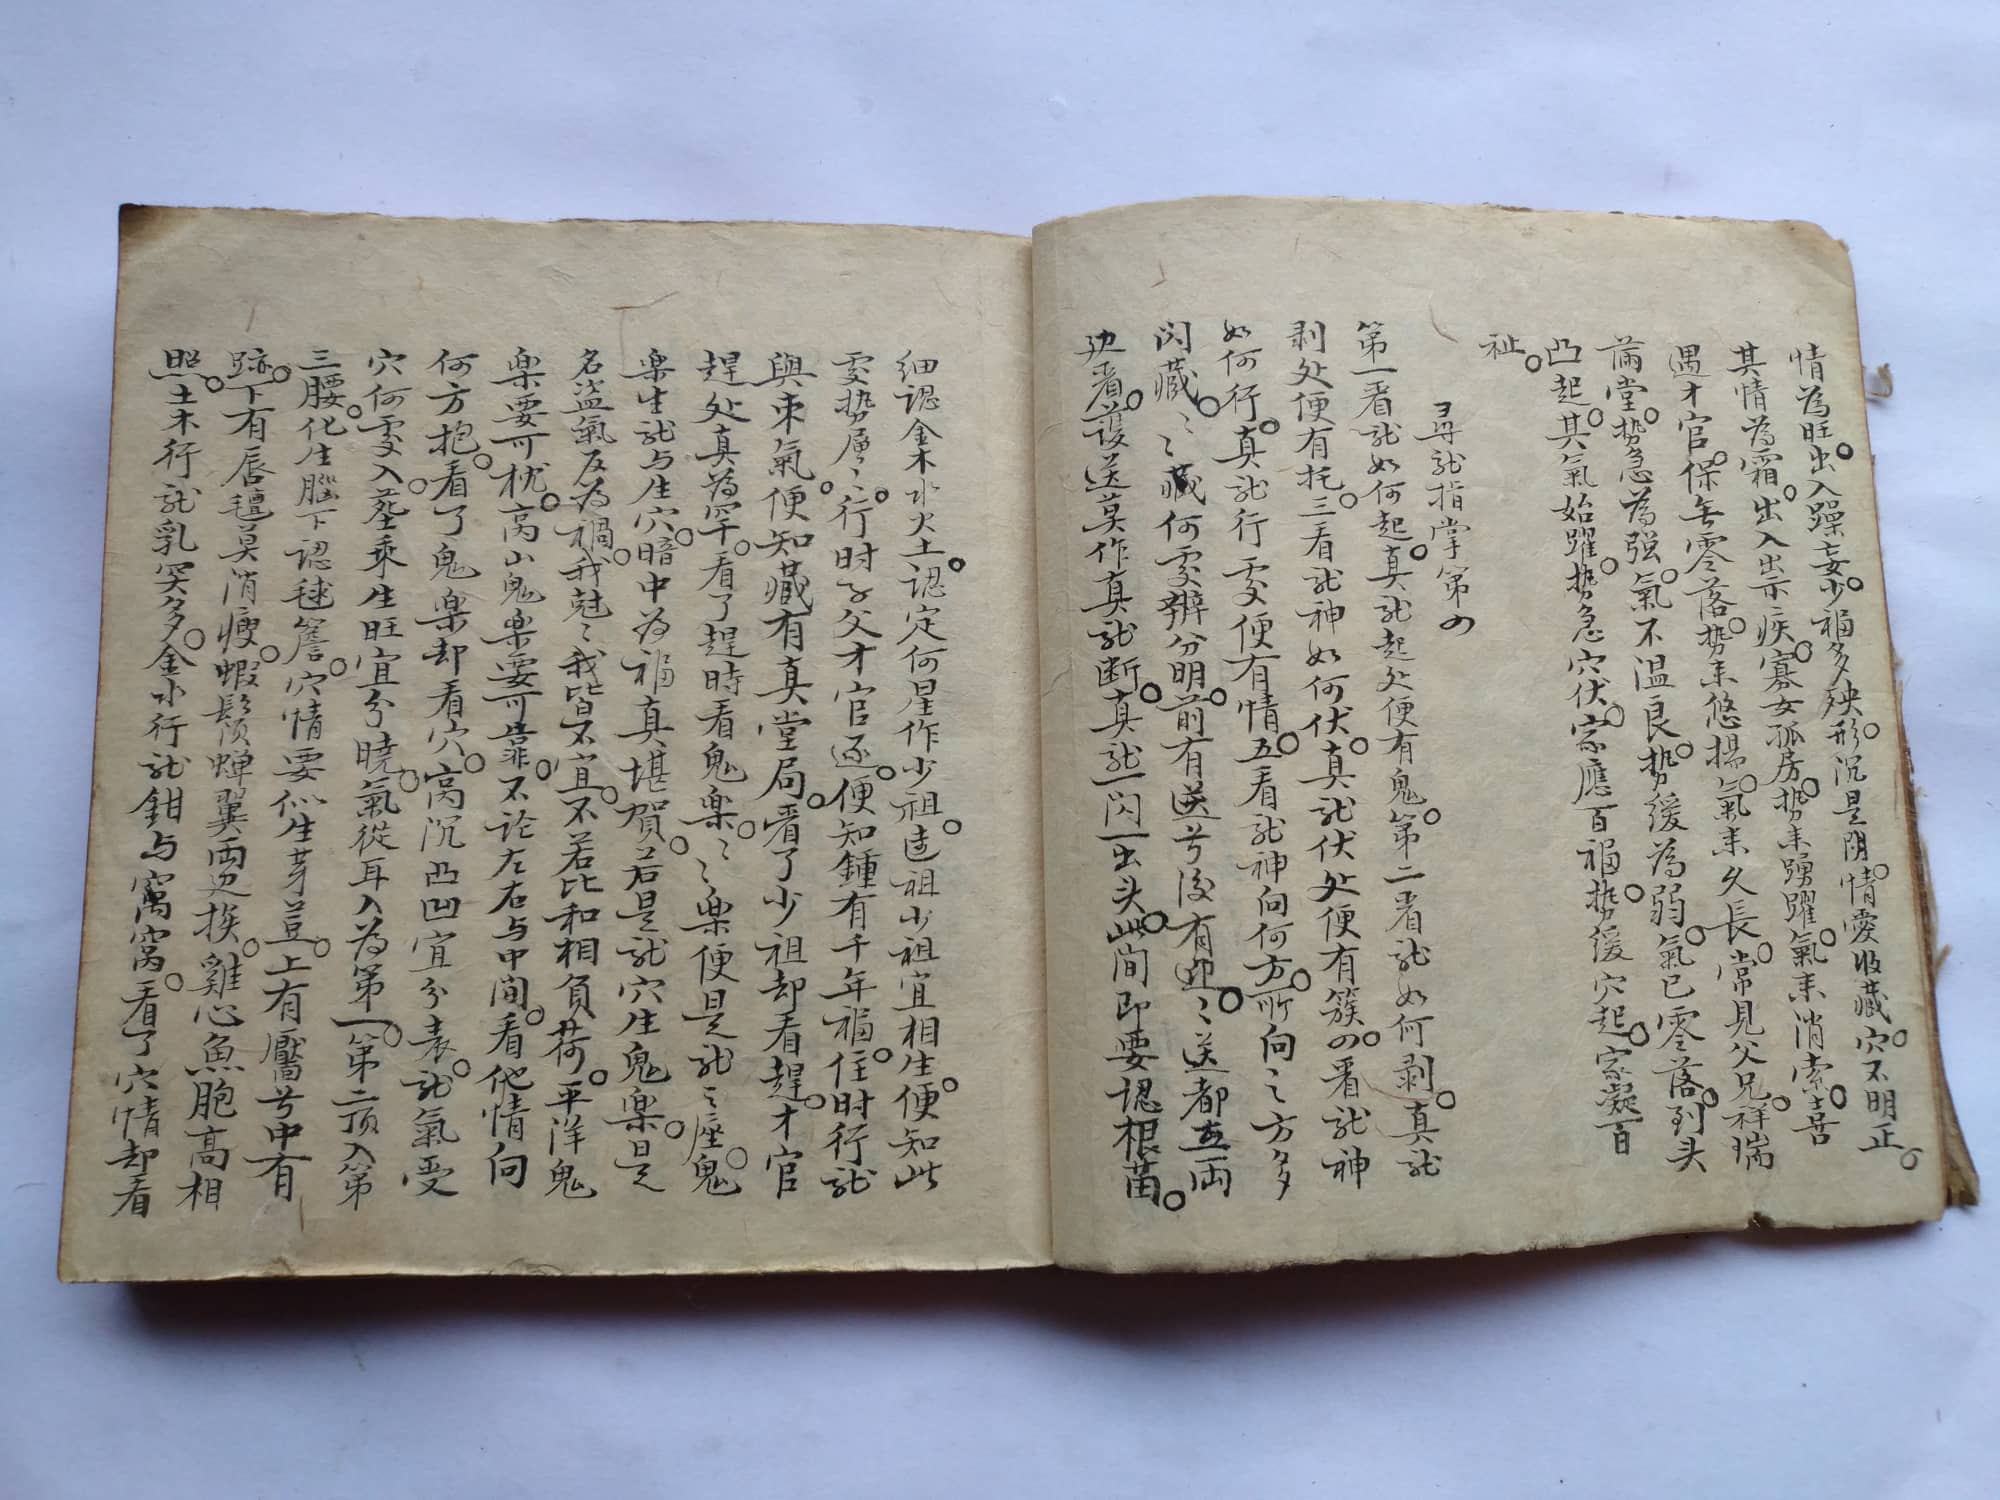 情為旺。出入躁妄。少福多殃。形沉是阴。情愛收藏。穴不明正。
其情為霜。出入出示疾。寡女孤房。势耒踴躍。氣耒消索。喜
遇才官。保無零落。势耒悠揚。氣耒久長。常見父兄。祥瑞
满堂。势急為强。氣不温良。势缓為弱。氣已零落。到头
凸起。其氣始躍。势急穴伏。家應百福。势缓穴起。家凝百
祉。
尋龙指掌第四
第一看龙如何起。真龙起处便有鬼。第二看龙如何剥。真龙
剥处便有托。三看龙神如何伏。真龙伏处便有簇。四看龙神
如何行。真龙行处便有情。五看龙神向何方。所向之方多
闪藏。〻藏何处辨分明。前有送兮後有迎。〻送都在两
边看。護送莫作真龙断。真龙一闪一出头。此间即要認根苗。
细認金木水火土。認定何星作少祖。逺祖少祖宜相生。便知此
处势層〻。行时子父才官逐。便知鍾有千年福。住时行龙
與束氣。便知藏有真堂局。看了少祖却看趕。才官
趕处真為罕。看了趕時看鬼楽。〻楽便是龙之座。鬼
楽生龙与生穴。暗中为福真堪賀。若是龙穴生鬼楽。是
名盗氣反為禍。我尅〻我皆不宜。不若比和相負荷。平洋鬼
楽要可枕。高山鬼楽要可靠。不论左右与中间。看他情向
何方抱。看了鬼楽却看穴。窝沉凸凹宜分表。龙氣受
穴何处入。葬乘生旺宜分曉。氣從耳入為第一。第二顶入第
三腰。化生腦下認毬簷。穴情要似生芽荳。上有靨兮中有
跡。下有唇氊莫消瘦。蝦鬚蟬翼两边挨。雞心魚胞高相
照。土木行龙乳突多。金水行龙鉗与窩。看了穴情却看